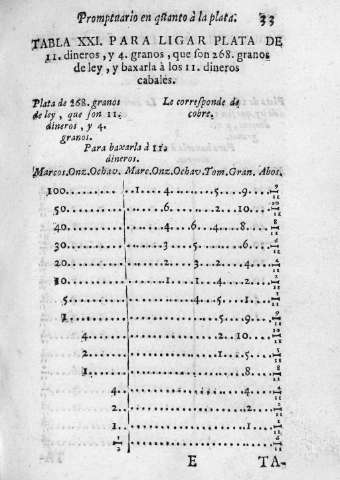 Promptuario en quanto à la plata. 33
TABLA XXI. PARA LIGAR PLATA DE
11. dineros, y 4. granos, que son 268. granos
de ley, y baxarla à los 11. dineros
cabales.
Plata de 268. granos Le corresponde de
de ley, que son 11. cobre.
dineros, y 4.
granos.
Para baxarla à 11.
dineros.
Marcos.Onz.Ochav. Marc.Onz.Ochav.Tom.Gran. Abos.
100. 1. 4. 5. 9.
50. 6. 2. 10.
40. 4. 6. 4. 8.
30. 3. 5. 6.
20. 2. 3. 2. 4.
10. 1. 1. 4. 2.
5. 4. 5. 1.
1. 5. 9.
4. 2. 10.
2. 1. 5.
1. 8.
4. 4.
2. 2.
1. 1.
1/2
E TA-